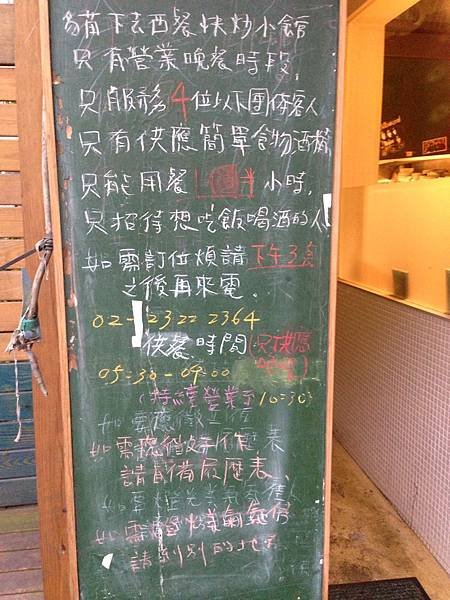 貓下去西餐快炒小館
只有營業晚餐時段,
只服務4位以下團体客人
只有供應簡單食物酒櫃
只能用餐1個半小時,
只招待想吃飯喝酒的人
如需訂位煩請下午3点
之後再來電。
02-2322 2364
供餐時間(只供應
05:30-09:00
(持續營業至10:30)
如需應徵
請前備履歷表、
如需
請到別的地方